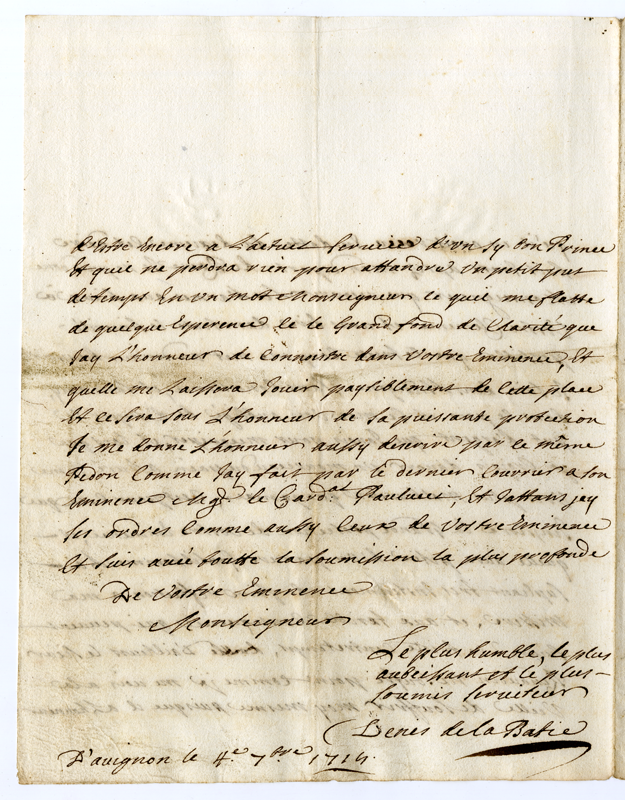 d'Estre Encore a L'actuel service d'un sy bon Prince
Et quil ne perdra rien pour attandre un petit peu
de temps En un mot Monseigneur ce quil me flatte
de quelque Esperence Ce le Grand fond de Clarité que
Jay L'honneur de Connoistre dans Vostre Eminence, Et
quelle me Laissera Jouir paysiblement de Cette place
Et ce sera sous L'honneur de sa puissante protection
Je me donne L'honneur aussy decrire par le même
Pedon Comme Jay fait par le dernier Courrier a son
Eminence Mgr. le Card.al Paulucci, Et Jattans jcy
ses ordres Comme aussy Ceux de Vostre Eminence
Et suis avec toutte la soumission la plus profonde
De Vostre Eminence
Monseigneur
Le plus humble, le plus
aubeissant et le plus
soumis serviteur
Denis de la Batie
D'avignon le 4.e 7bre 1714.